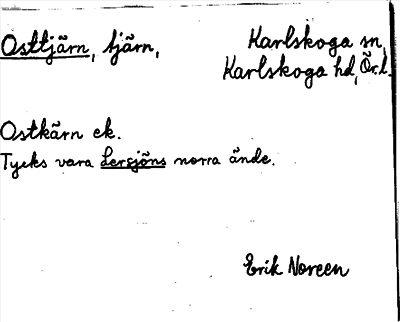 Osttjärn, tjärn, Karlskoga sn,
Karlskoga hd, Ör.l.
Ostkärn ek.
Tycks vara Lersjöns norra ände.
Erik Noreen